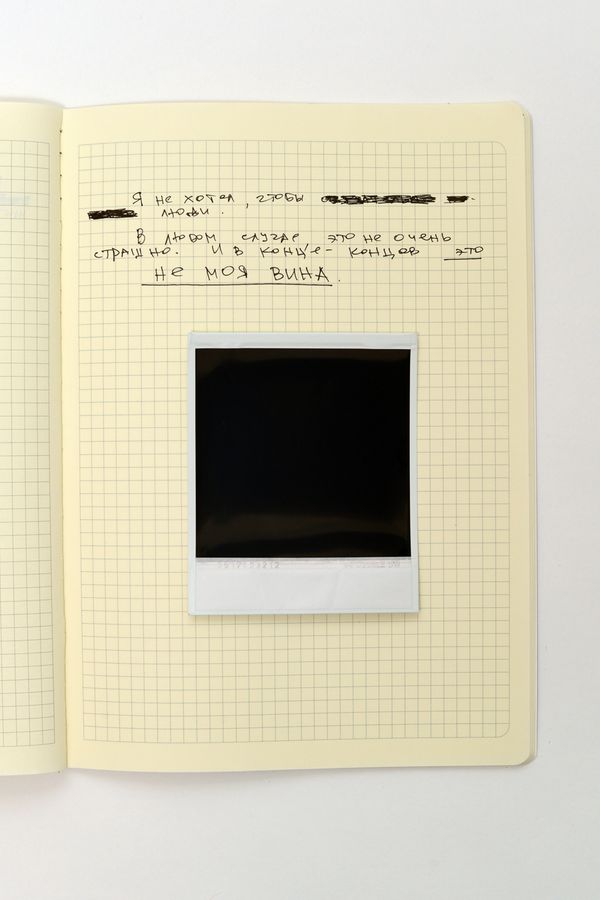 Я не хотел, чтобы
люди.
В любом случае это не очень
страшно. И в конце-концов это
не моя вина.